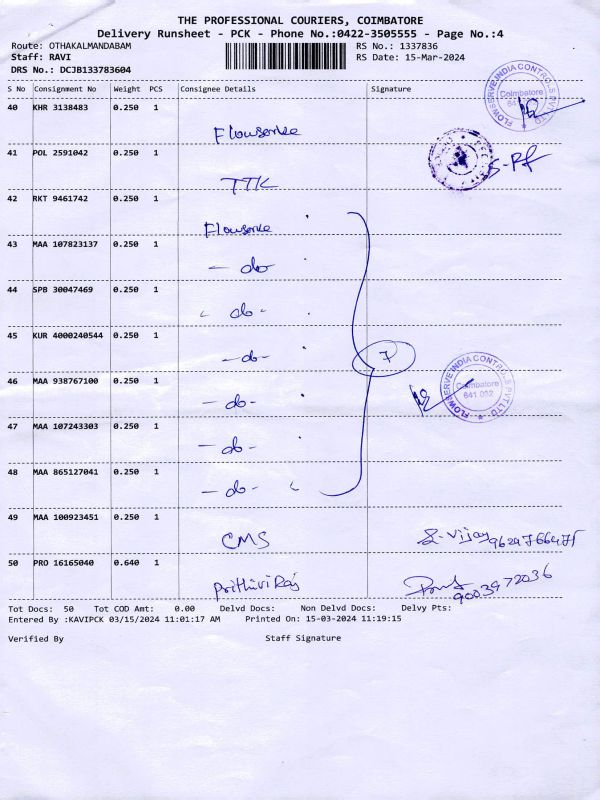 THE PROFESSIONAL COURIERS, COIMBATORE
Delivery Runsheet - PCK - Phone No.:0422-3505555 - Page No.:4
Route: OTHAKALMANDABAM
RS No.: 1337836
Staff: RAVI
RS Date: 15-Mar-2024
DRS No.: DCJB133783604
S No Consignment No Weight PCS Consignee Details Signature
40 KHR 3138483 0.250 1 Flowserve
FLOWSERVE INDIA CONTROLS PVT LTD
Coimbatore
641
41 POL 2591042 0.250 1 TTK
42 RKT 9461742 0.250 1 Flowserve
43 MAA 107823137 0.250 1 - do
44 SPB 30047469 0.250 1 - do -
45 KUR 4000240544 0.250 1 - do -
7
46 MAA 938767100 0.250 1 - do -
FLOWSERVE INDIA CONTROLS PVT LTD
Coimbatore
641 032
47 MAA 107243303 0.250 1 - do -
48 MAA 865127041 0.250 1 - do -
49 MAA 100923451 0.250 1 CMS S-Vijay
50 PRO 16165040 0.640 1 PrithiviRaj
9003972036
Tot Docs: 50 Tot COD Amt: 0.00 Delvd Docs: Non Delvd Docs: Delvy Pts:
Entered By :KAVIPCK 03/15/2024 11:01:17 AM Printed On: 15-03-2024 11:19:15
Verified By Staff Signature